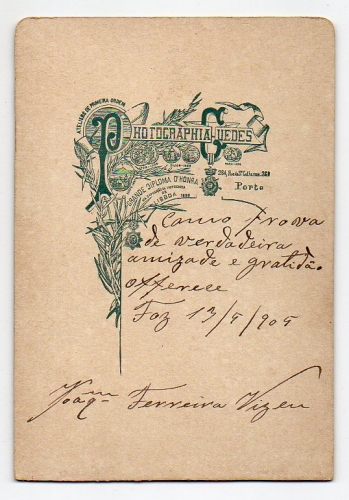 ATELIERS DE PRIMEIRA ORDEM
PHOTOGRAPHIA GUEDES
Porto
GRANDE DIPLOMA D'HONRA
LISBOA
Como prova
de verdadeira
amizade e gratidão
offerece
Foz 13/9/909
Joaqm Ferreira Vizeu